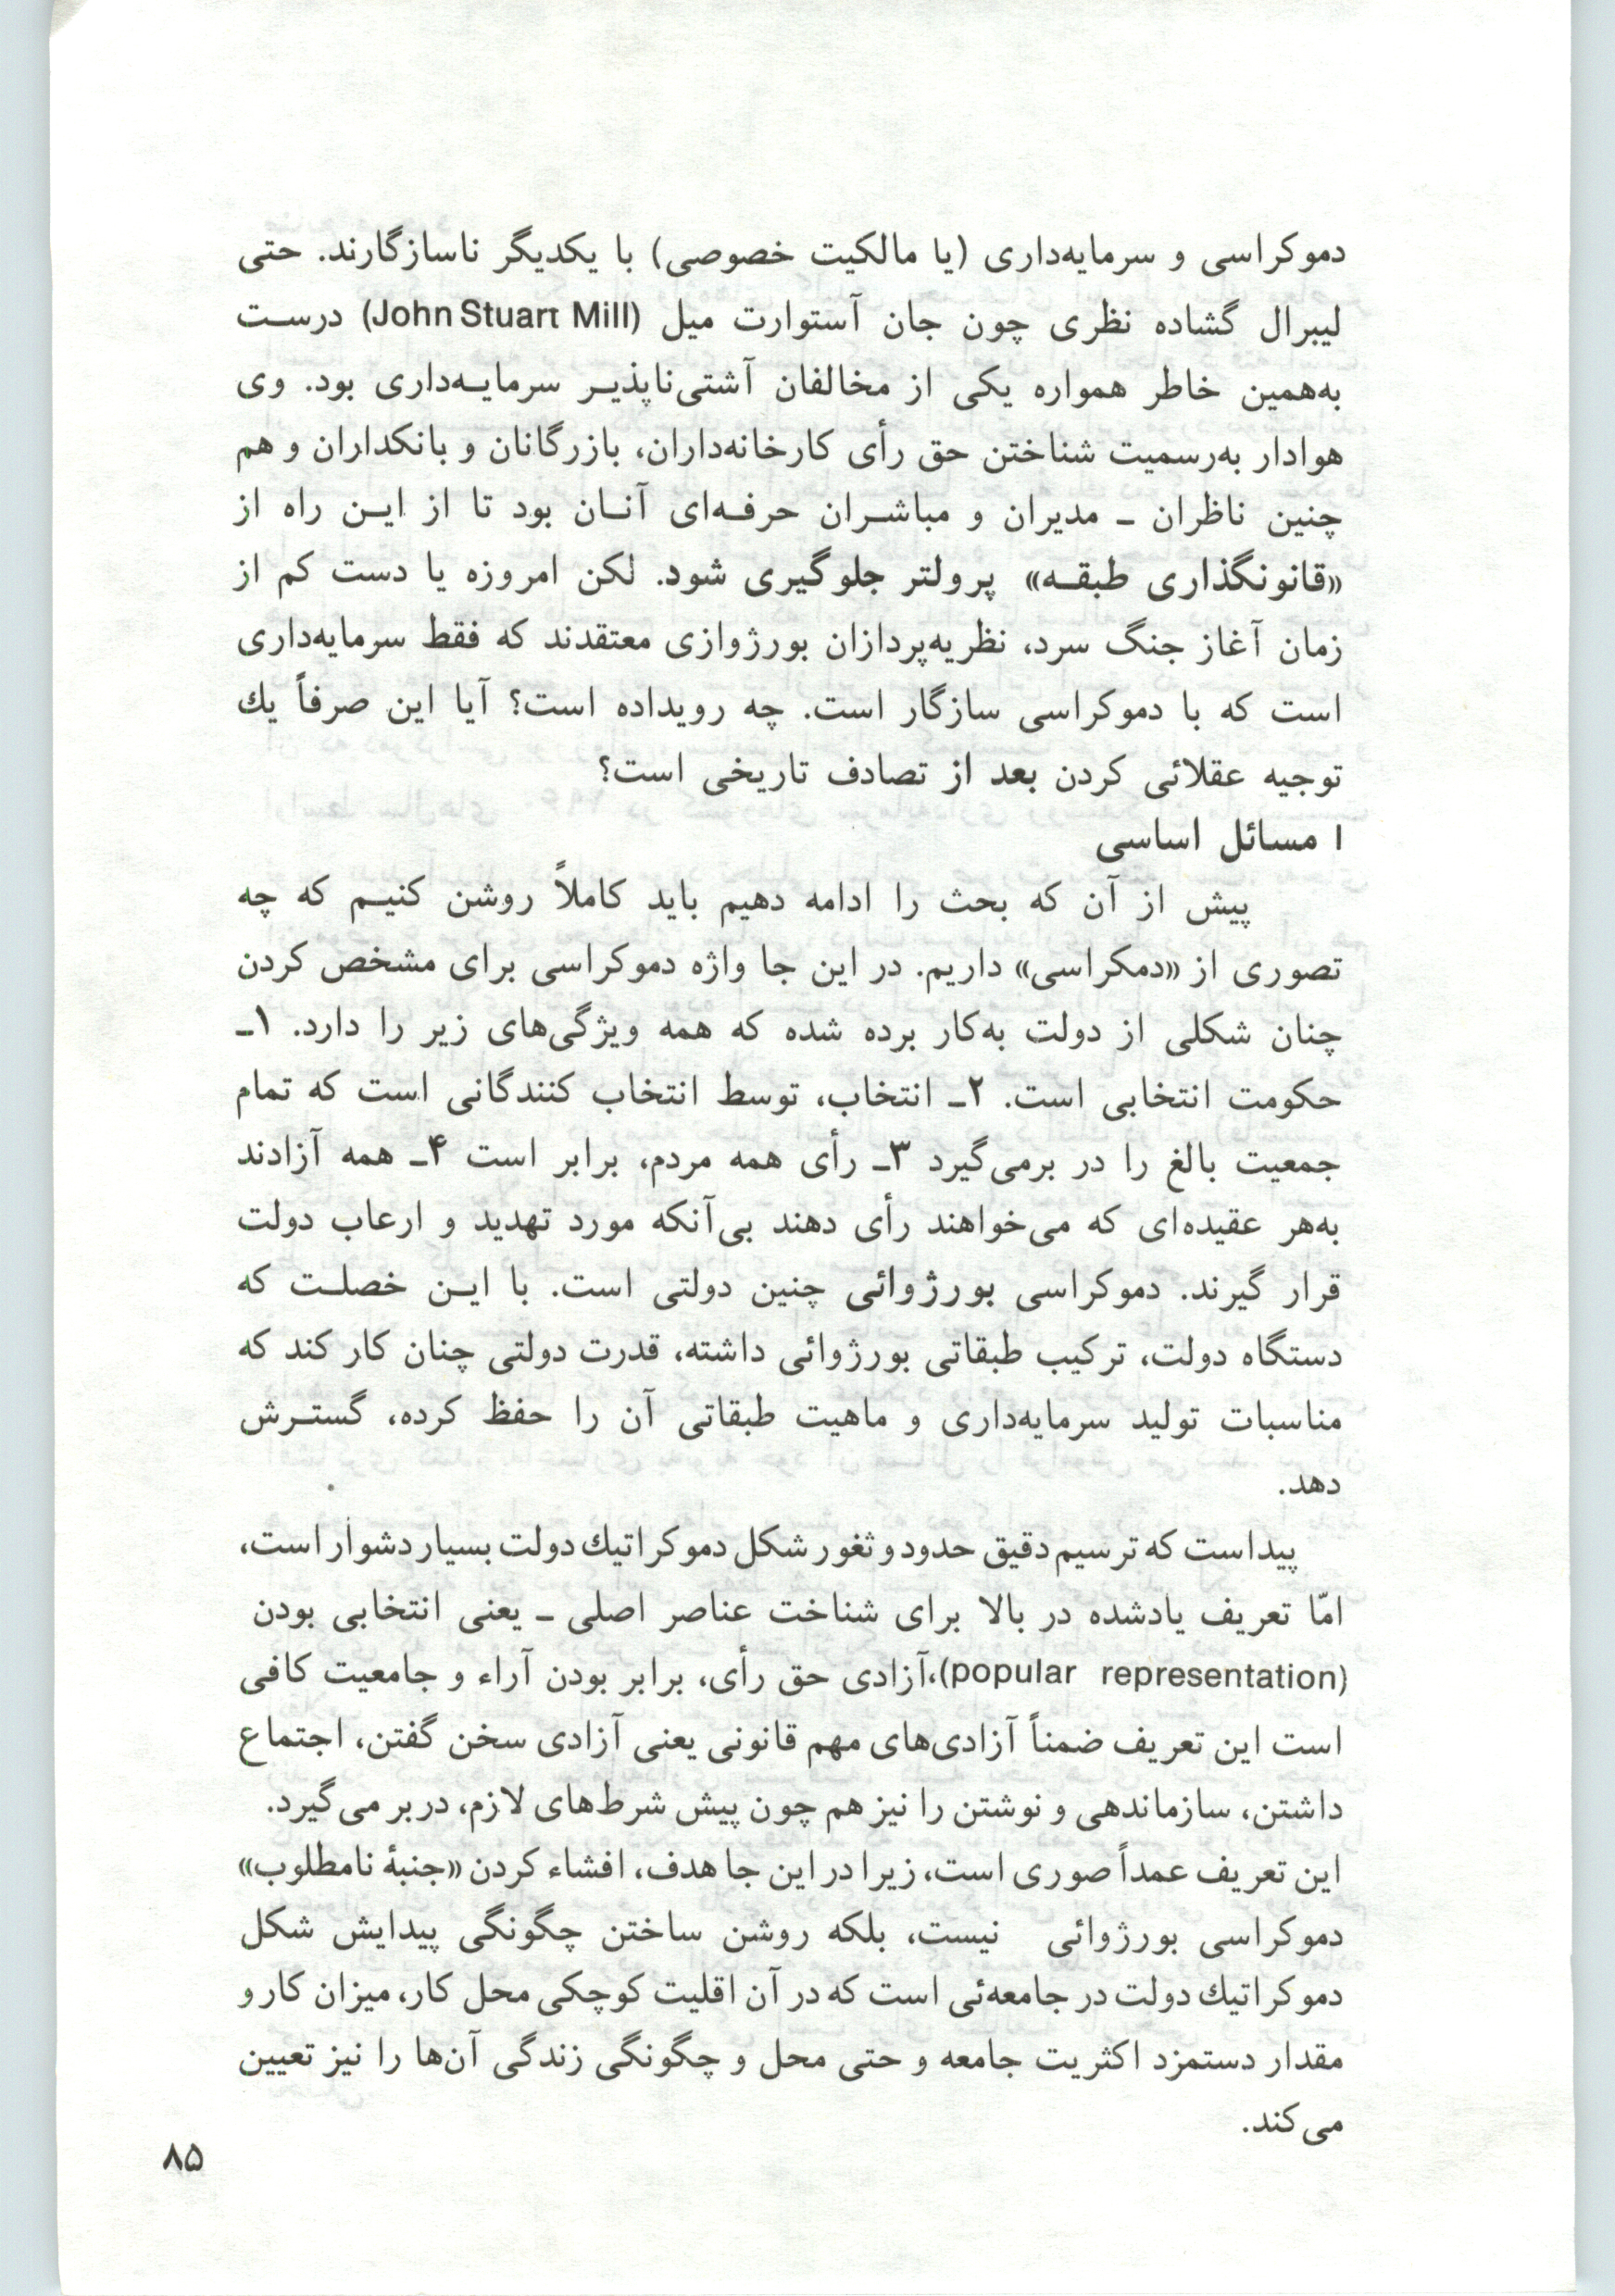 دموکراسی و سرمایه‌داری (یا مالکیت خصوصی) با یکدیگر ناسازگارند. حتی
لیبرال گشاده نظری چون جان آستوارت میل (John Stuart Mill) درست
به‌همین خاطر همواره یکی از مخالفان آشتی‌ناپذیر سرمایه‌داری بود. وی
هوادار به‌رسمیت شناختن حق رأی کارخانه‌داران، بازرگانان و بانکداران و هم
چنین ناظران ـ مدیران و مباشران حرفه‌ای آنان بود تا از این راه از
«قانونگذاری طبقه» پرولتر جلوگیری شود. لکن امروزه یا دست کم از
زمان آغاز جنگ سرد، نظریه‌پردازان بورژوازی معتقدند که فقط سرمایه‌داری
است که با دموکراسی سازگار است. چه رویداده است؟ آیا این صرفاً یك
توجیه عقلائی کردن بعد از تصادف تاریخی است؟
I مسائل اساسی
پیش از آن که بحث را ادامه دهیم باید کاملاً روشن کنیم که چه
تصوری از «دمکراسی» داریم. در این جا واژه دموکراسی برای مشخص کردن
چنان شکلی از دولت به‌کار برده شده که همه ویژگی‌های زیر را دارد. ۱ـ
حکومت انتخابی است. ۲ـ انتخاب، توسط انتخاب کنندگانی است که تمام
جمعیت بالغ را در برمی‌گیرد ۳ـ رأی همه مردم، برابر است ۴ـ همه آزادند
به‌هر عقیده‌ای که می‌خواهند رأی دهند بی‌آنکه مورد تهدید و ارعاب دولت
قرار گیرند. دموکراسی بورژوائی چنین دولتی است. با این خصلت که
دستگاه دولت، ترکیب طبقاتی بورژوائی داشته، قدرت دولتی چنان کار کند که
مناسبات تولید سرمایه‌داری و ماهیت طبقاتی آن را حفظ کرده، گسترش
دهد.
پیداست که ترسیم دقیق حدود و ثغور شکل دموکراتیك دولت بسیار دشوار است،
امّا تعریف یادشده در بالا برای شناخت عناصر اصلی ـ یعنی انتخابی بودن
(popular representation)،آزادی حق رأی، برابر بودن آراء و جامعیت کافی
است این تعریف ضمناً آزادی‌های مهم قانونی یعنی آزادی سخن گفتن، اجتماع
داشتن، سازماندهی و نوشتن را نیز هم چون پیش شرط‌های لازم، دربر می‌گیرد.
این تعریف عمداً صوری است، زیرا در این جا هدف، افشاء کردن «جنبهٔ نامطلوب»
دموکراسی بورژوائی نیست، بلکه روشن ساختن چگونگی پیدایش شکل
دموکراتیك دولت در جامعه‌ئی است که در آن اقلیت کوچکی محل کار، میزان کار و
مقدار دستمزد اکثریت جامعه و حتی محل و چگونگی زندگی آن‌ها را نیز تعیین
می‌کند.
۸۵